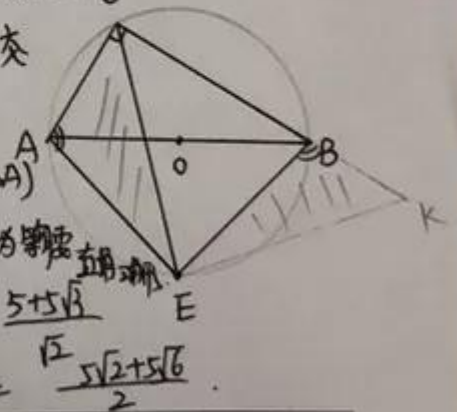 交
A
B
O
A)
K
为等腰直角三角形
E
\frac{5+5\sqrt{3}}{\sqrt{2}}
\frac{5\sqrt{2}+5\sqrt{6}}{2}.